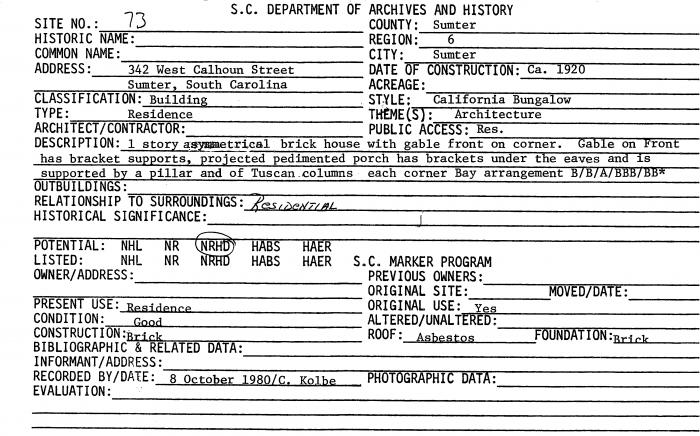 S.C. DEPARTMENT OF ARCHIVES AND HISTORY
SITE NO.: 73 COUNTY: Sumter
HISTORIC NAME: REGION: 6
COMMON NAME: CITY: Sumter
ADDRESS: 342 West Calhoun Street DATE OF CONSTRUCTION: Ca. 1920
Sumter, South Carolina ACREAGE:
CLASSIFICATION: Building STYLE: California Bungalow
TYPE: Residence THEME(S): Architecture
ARCHITECT/CONTRACTOR: PUBLIC ACCESS: Res.
DESCRIPTION: 1 story asymmetrical brick house with gable front on corner. Gable on Front
has bracket supports, projected pedimented porch has brackets under the eaves and is
supported by a pillar and of Tuscan columns each corner Bay arrangement B/B/A/BBB/BB*
OUTBUILDINGS:
RELATIONSHIP TO SURROUNDINGS: RESIDENTIAL
HISTORICAL SIGNIFICANCE:
POTENTIAL: NHL NR NRHD HABS HAER
LISTED: NHL NR NRHD HABS HAER S.C. MARKER PROGRAM
OWNER/ADDRESS: PREVIOUS OWNERS:
ORIGINAL SITE: MOVED/DATE:
PRESENT USE: Residence ORIGINAL USE: Yes
CONDITION: Good ALTERED/UNALTERED:
CONSTRUCTION: Brick ROOF: Asbestos FOUNDATION: Brick
BIBLIOGRAPHIC & RELATED DATA:
INFORMANT/ADDRESS:
RECORDED BY/DATE: 8 October 1980/C. Kolbe PHOTOGRAPHIC DATA:
EVALUATION: